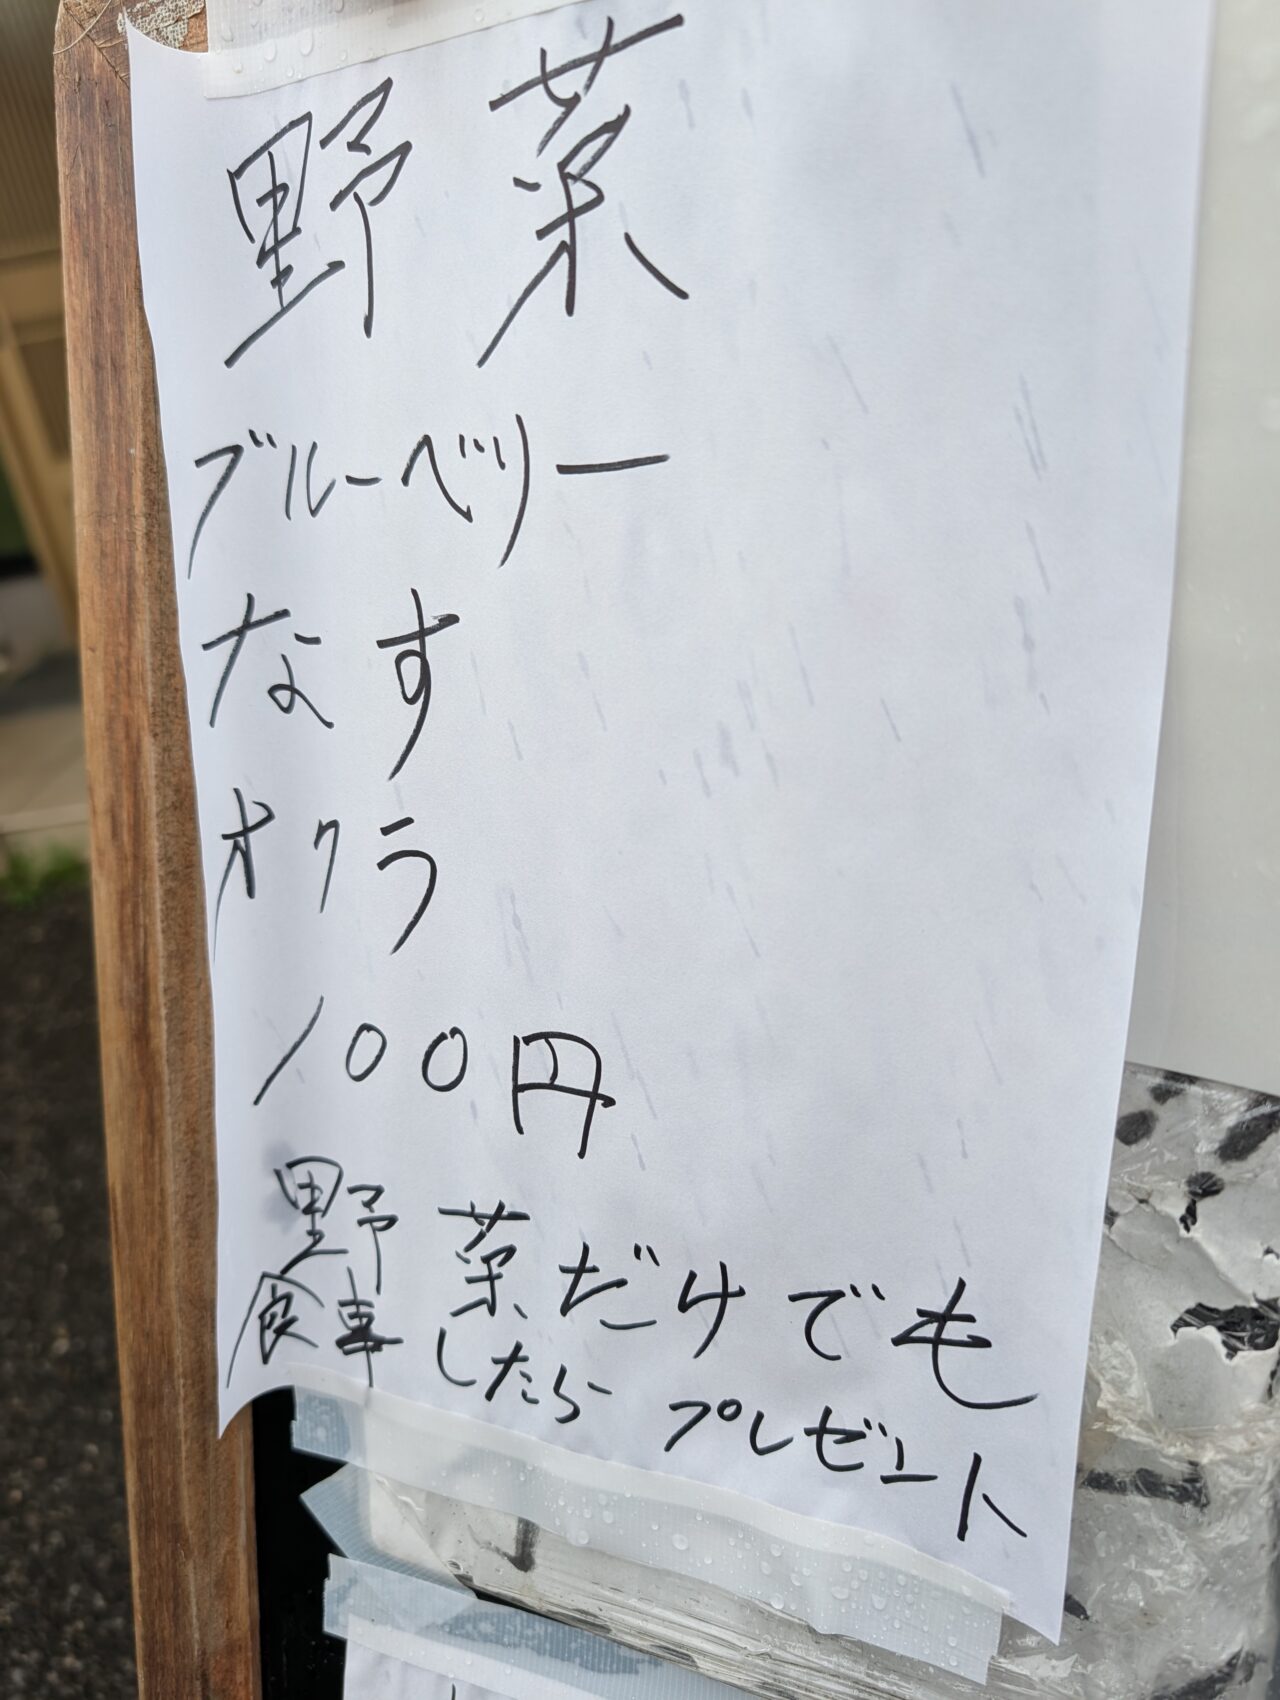 野菜
ブルーベリー
なす
オクラ
100円
野菜だけでも
食事したらプレゼント